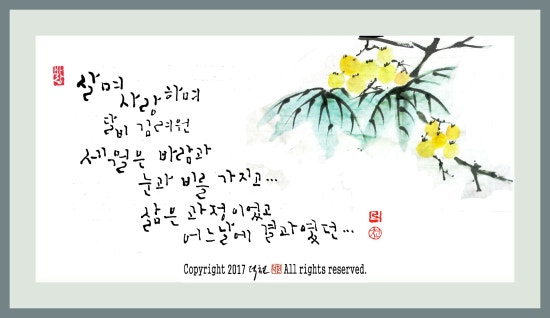 살며
사랑하며
달비 김려원
세월은 바람과
눈과 비를 가지고...
삶은 과정이었고
어느날에 결과였던...
Copyright 2017 All rights reserved.